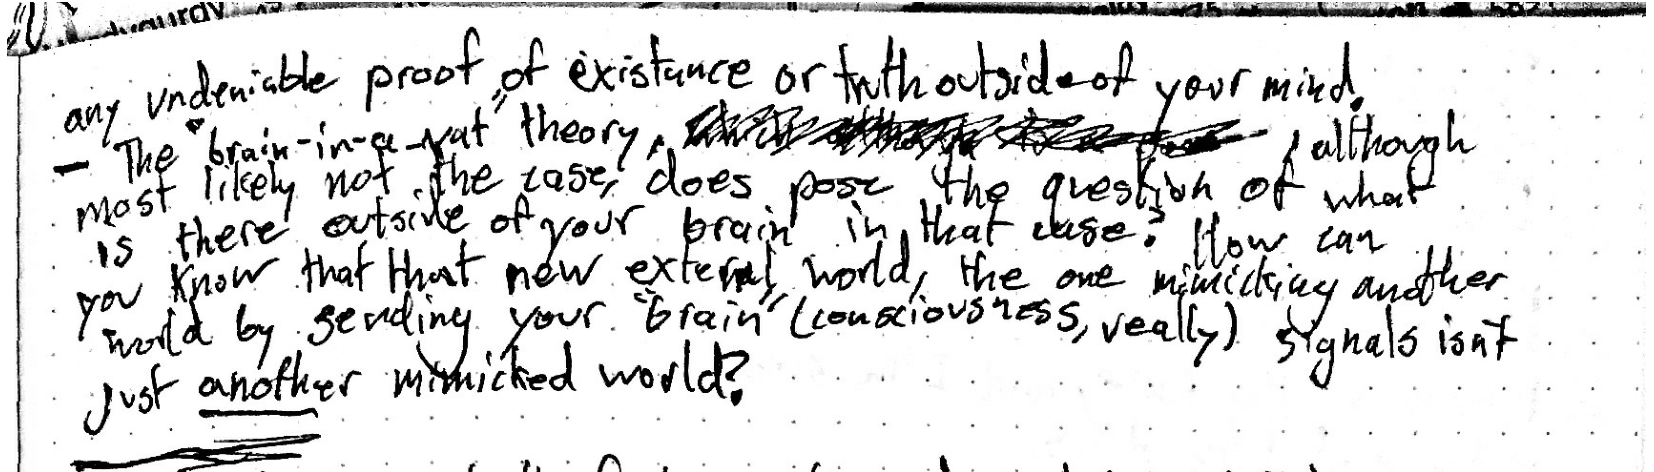 any undeniable proof of existance or truth outside of your mind.
- The "brain-in-a-vat" theory, , although
most likely not the case, does pose the question of what
is there outside of your brain in that case? How can
you know that that new external world, the one mimicking another
world by sending your "brain" (consciousness, really) signals isn't
just another mimicked world?